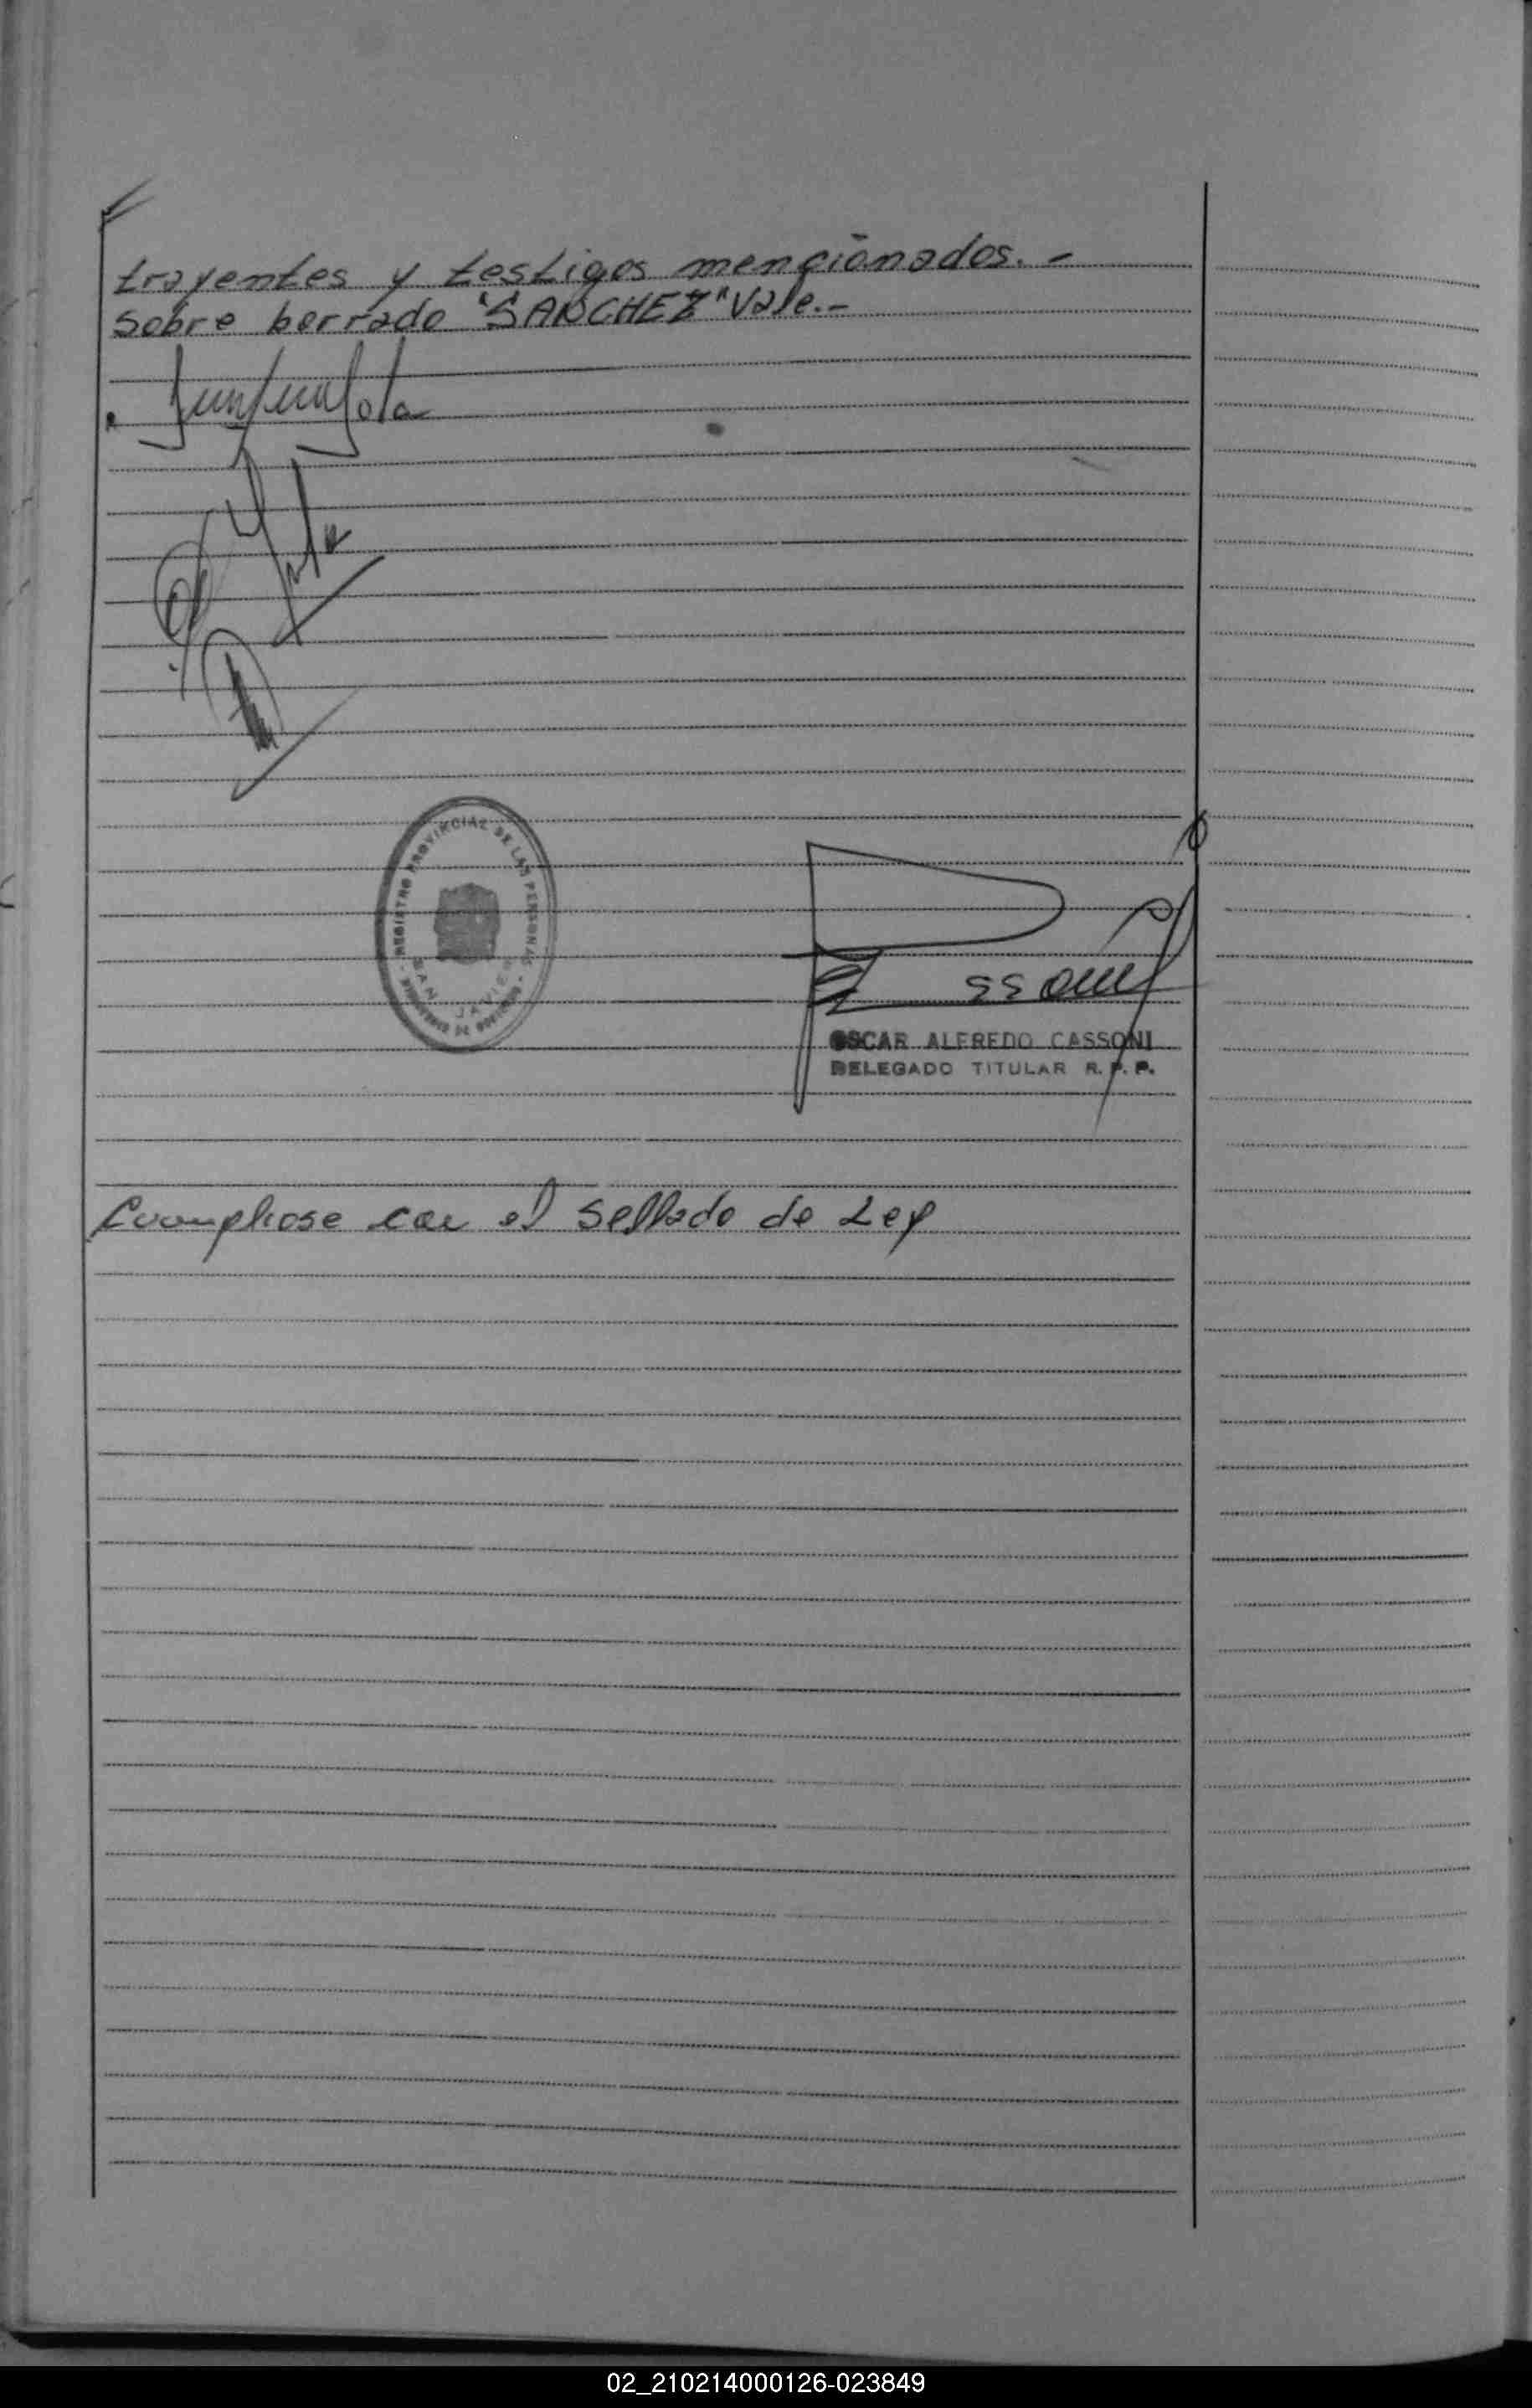 trayentes y testigos mencionados.-
Sobre borrado "SANCHEZ" Vale.-
REGISTRO PROVINCIAL DE LAS PERSONAS
SAN JAVIER
OSCAR ALFREDO CASSONI
DELEGADO TITULAR R.P.P.
Cúmplase con el Sellado de Ley
02_210214000126-023849